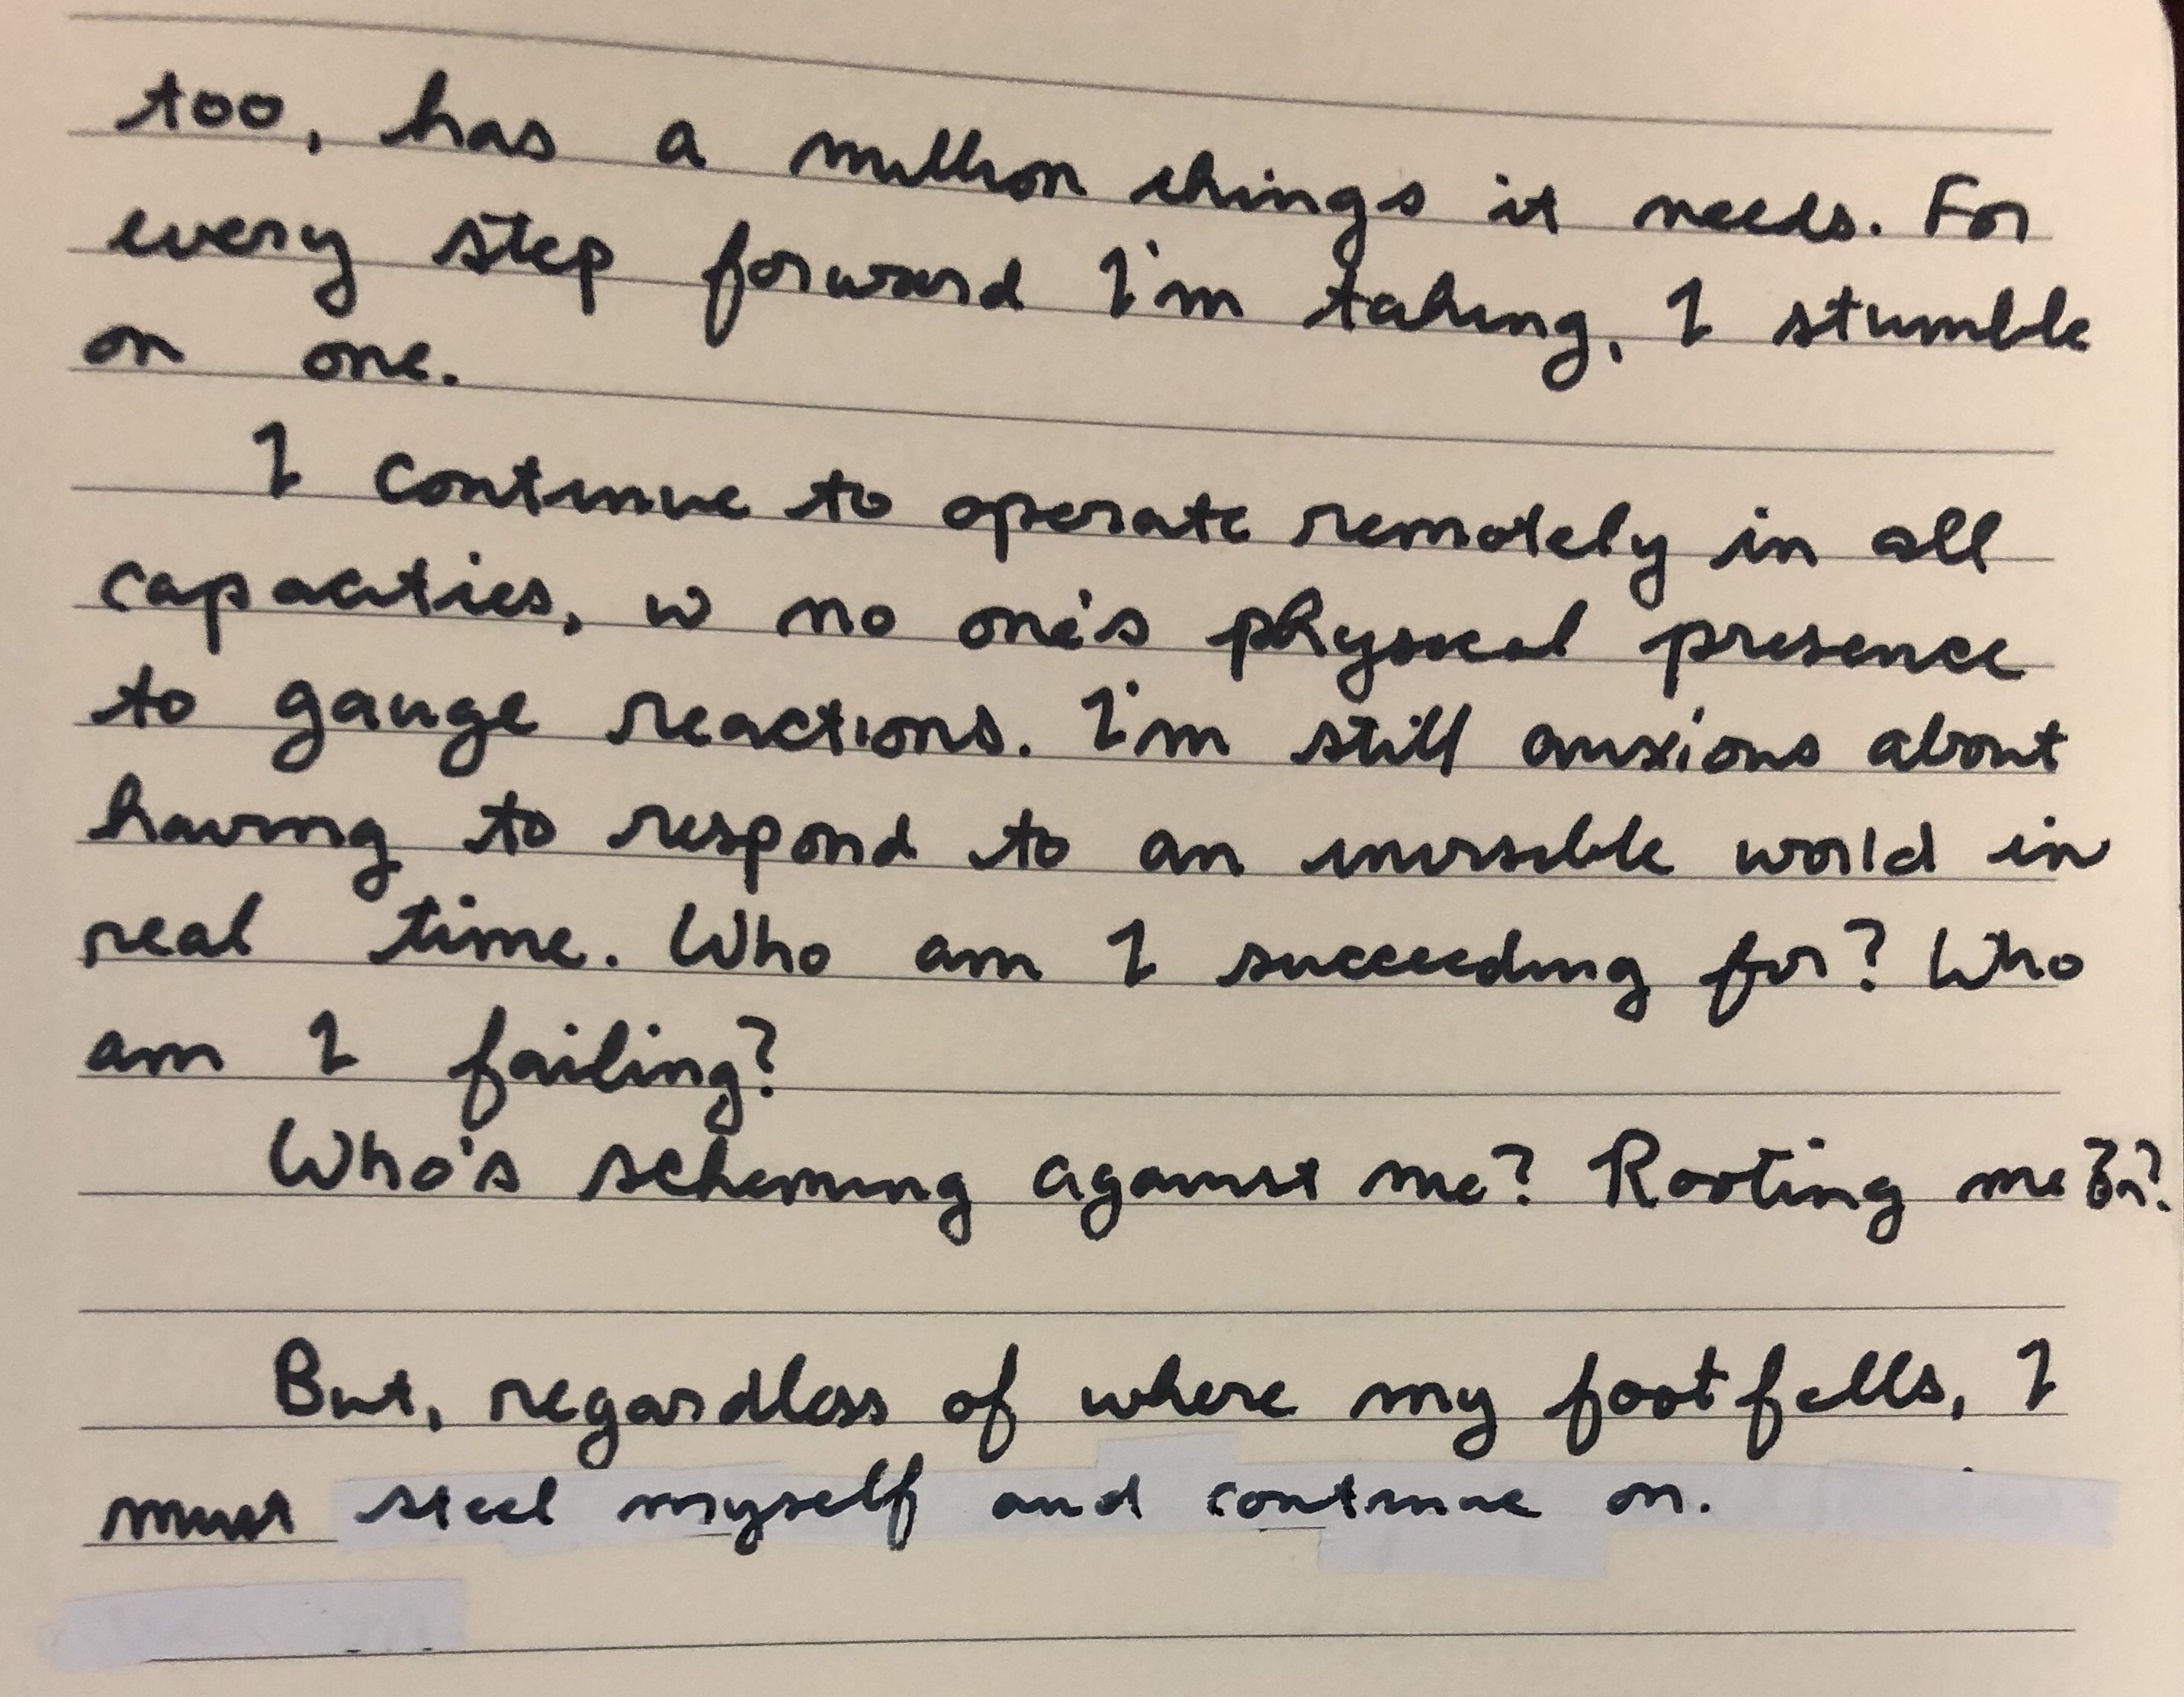 too, has a million things it needs. For
every step forward I'm taking, I stumble
on one.
I continue to operate remotely in all
capacities, w no one's physical presence
to gauge reactions. I'm still anxious about
having to respond to an invisible world in
real time. Who am I succeeding for? Who
am I failing?
Who's scheming against me? Rooting me
But, regardless of where my foot fells, I
must steel myself and continue on.